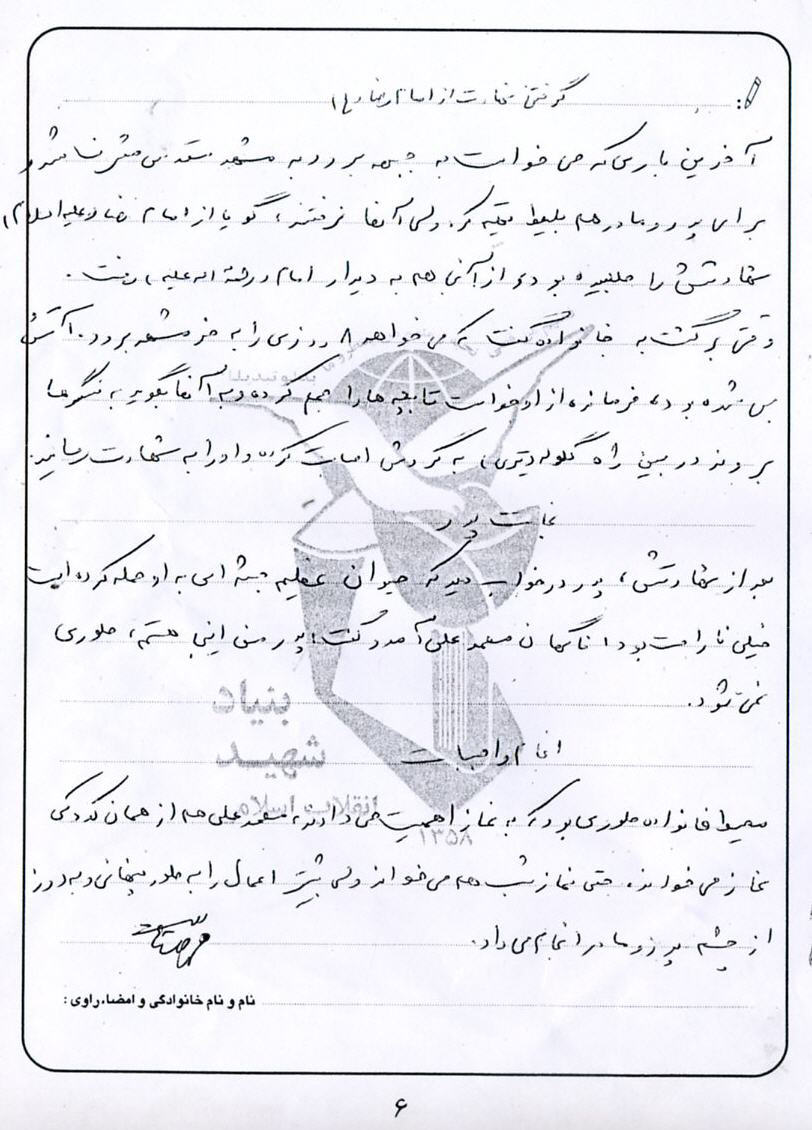 گرفتن شهادت از امام رضا (ع)
آخرین باری که می خواست به جبهه برود به مشهد مقدس مشرف شد و
برای پدر و مادر هم بلیط تهیه کرد ولی آنها نرفتند، گویا از امام رضا (علیه السلام)
شهادتش را طلبیده بود و از آنجا هم به دیدار امام (رحمة الله علیه) رفت.
وقتی برگشت به خانواده گفت که می خواهد ۸ روزی را به خرمشهر برود. آتش
بس شده بود، فرمانده از او خواست تا بچه ها را جمع کرده و به آنها بگوید به سنگرها
بروند در بین راه گلوله به گردنش اصابت کرده و او را به شهادت رساند.
نجات پدر
بعد از شهادتش، پدر در خواب دید که حیوان عظیم جثه ای به او حمله کرده است
خیلی ناراحت بود، ناگهان محمد علی آمد و گفت: پدر من اینجا هستم، طوری
نمی شود.
انجام واجبات
محیط خانواده طوری بود که به نماز اهمیت می دادند، محمد علی هم از همان کودکی
نماز می خواند، حتی نماز شب هم می خواند ولی بیشتر اعمال را به طور پنهانی و به دور
از چشم پدر و مادر انجام می داد.
نام و نام خانوادگی و امضاء راوی:
بنیاد
شهید
انقلاب اسلامی
۱۳۵۸
۶